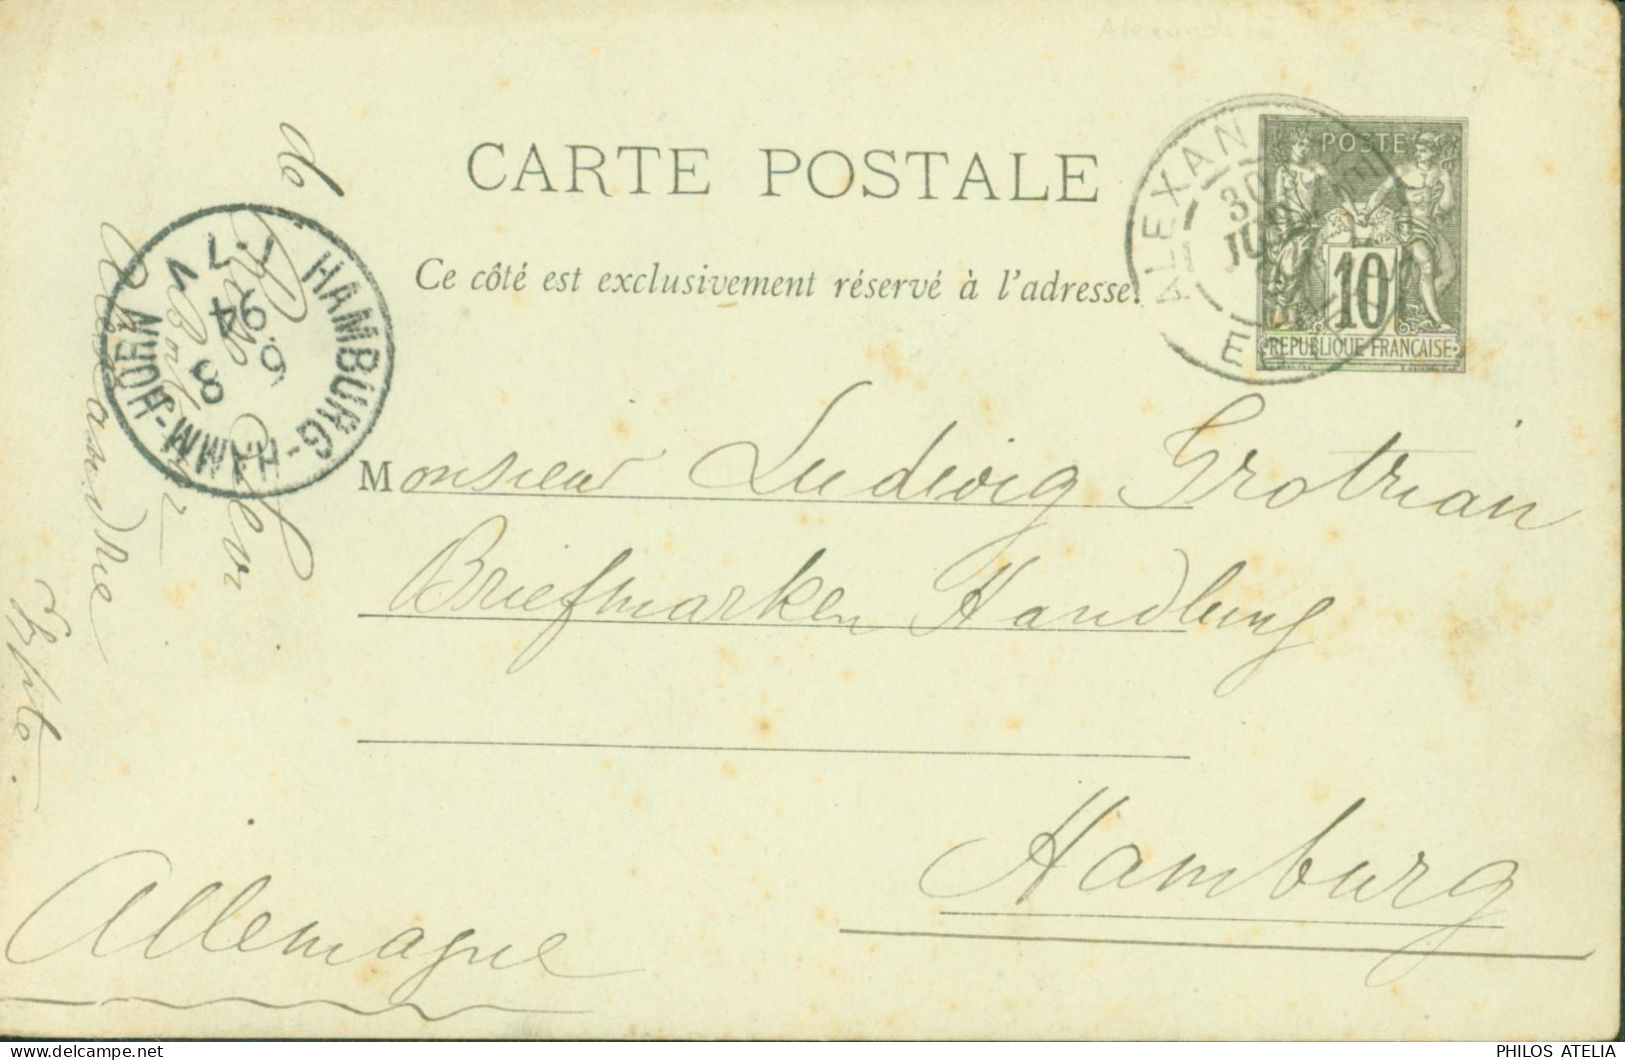 Alexandrie
CARTE POSTALE
Ce côté est exclusivement réservé à l'adresse.
POSTE
10
REPUBLIQUE FRANÇAISE
ALEXAN
30
JUIN
HAMBURG-HAMM-HORN
8
6.94
1-7 V
Monsieur Ludwig Grotrian
Briefmarken Handlung
Hamburg
Allemagne
de
Alexandrie
Egypte.
PHILOS ATELIA